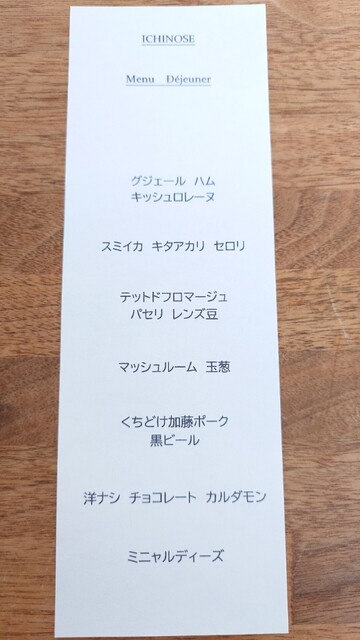 ICHINOSE
Menu Déjeuner
グジェール ハム
キッシュロレーヌ
スミイカ キタアカリ セロリ
テットドフロマージュ
パセリ レンズ豆
マッシュルーム 玉葱
くちどけ加藤ポーク
黒ビール
洋ナシ チョコレート カルダモン
ミニャルディーズ